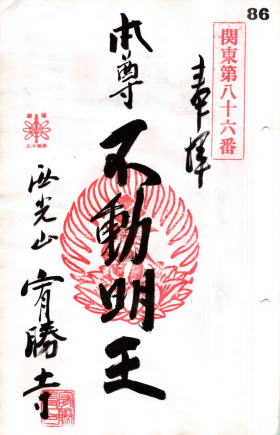 86
関東第八十六番
奉拝
本尊
不動明王
医光山
宥勝寺